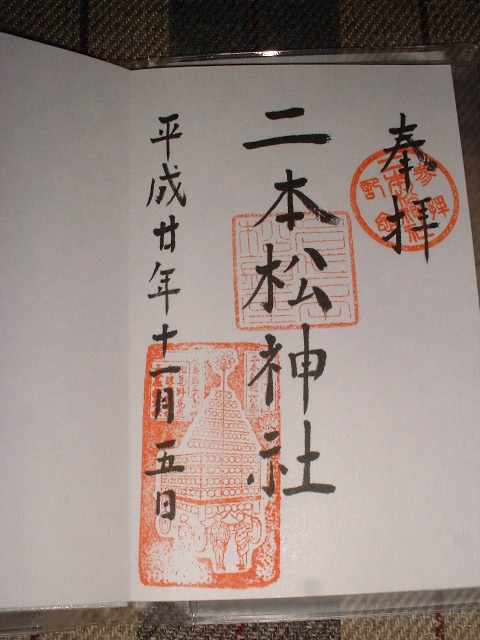 奉拝
二本松神社
平成廿年十一月五日